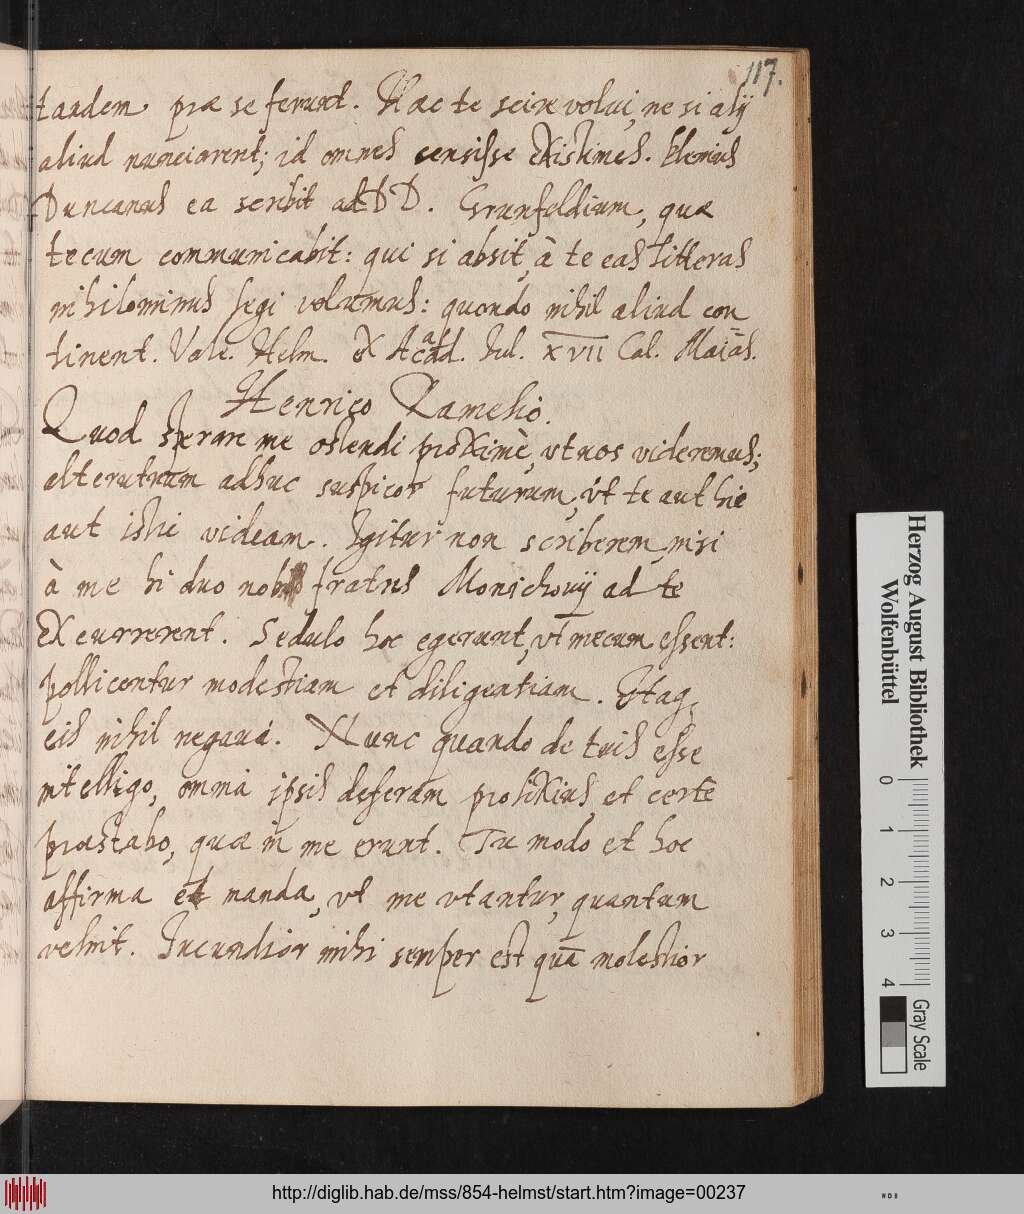 117.
tandem præ se ferunt. Hæc te scire volui, ne si alij
aliud nunciarent; id omnes sensisse existimes.
Duncanus ea scribit ad DD. Grunfeldium, quæ
tecum communicabit: qui si absit, à te eas litteras
nihilominus legi volumus: quando nihil aliud con
tinent. Vale. Helm. ex Acad. Iul. XVII Cal. Maias.
Henrico Ramelio.
Quod sperare me ostendi proximè, vt nos videremus;
alterutrum adhuc suspicor futurum, vt te aut hic
aut istic videam. Igitur non scriberem, nisi
à me hi duo fratres Monichovij ad te
excurrerent. Sedulo hoc egerunt, vt mecum essent:
pollicentur modestiam et diligentiam. Itaq;
eis nihil negavi. Nunc quando de tuis esse
intelligo, omnia ipsis deferam prolixius, et certè
præstabo, quæ in me erunt. Tu modo et hoc
affirma et manda, vt me vtantur, quantum
velint. Iucundior mihi semper est quā molestior
Herzog August Bibliothek
Wolfenbüttel
0 1 2 3 4
Gray Scale
http://diglib.hab.de/mss/854-helmst/start.htm?image=00237
WDB